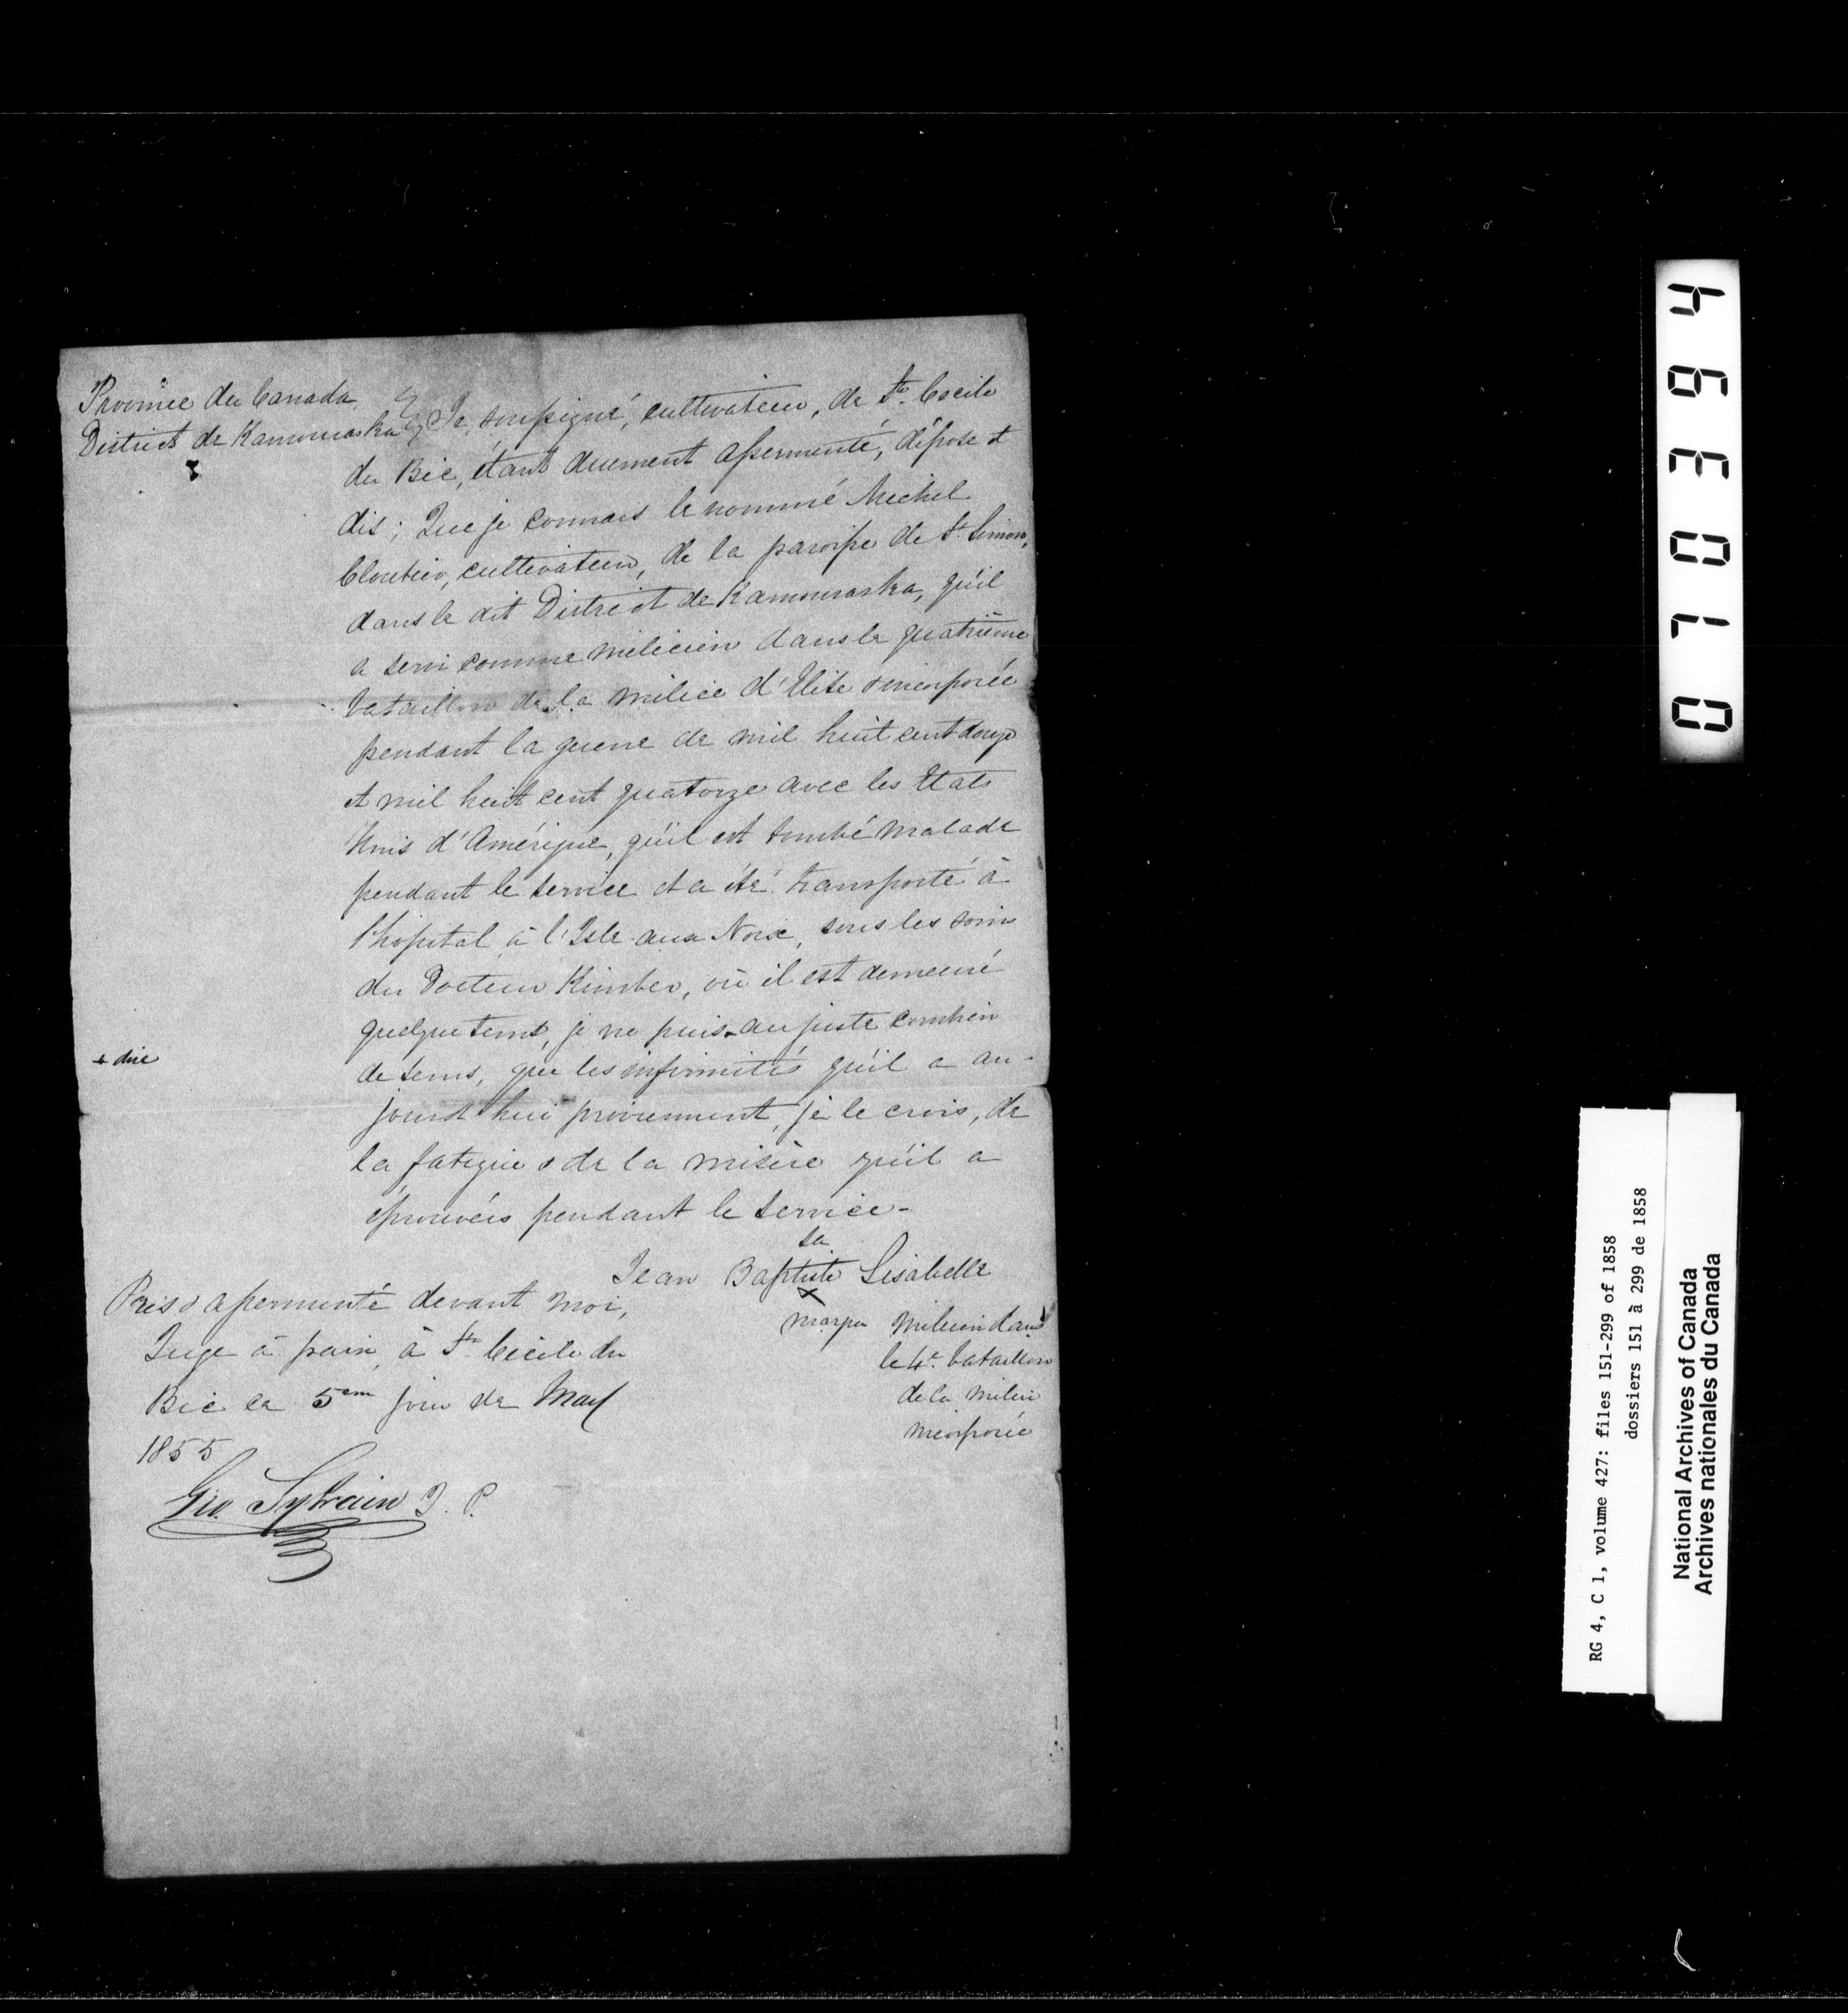 Province du Canada
District de Kamouraska } Je, soussigné, cultivateur, de Ste. Cecile
du Bic, étant duement assermenté, dépose et
dis; Que je connais le nommé Michel
Cloutier, cultivateur, de la paroisse de St. Simon,
dans le dit District de Kamouraska, qu'il
a servi comme milicien dans le quatrième
bataillon de la milice d'Elite & incorporée
pendant la guerre de mil huit cent douze
et mil huit cent quatorze avec les Etats
Unis d'Amérique, qu'il est tombé malade
pendant le service et a été transporté à
l'hopital à l'Isle aux Noix, sous les soins
du Docteur Kimber, où il est demeuré
quelque tems, je ne puis + au juste combien
+ dire
de tems, que les infirmités qu'il a au-
jourd'hui proviennent, je le crois, de
la fatigue & de la misère qu'il a
éprouvées pendant le service -
sa
Jean Baptiste Lisabelle
x
marque
Milicien dans
le 4e. bataillon
de la milice
incorporée
Pris & assermenté devant moi,
Juge à paix, à Ste Cécile du
Bic ce 5em jour de Mars
1855
Geo. Sylvain J. P.
071364
071364
RG 4, C 1, volume 427: files 151-299 of 1858
dossiers 151 à 299 de 1858
National Archives of Canada
Archives nationales du Canada